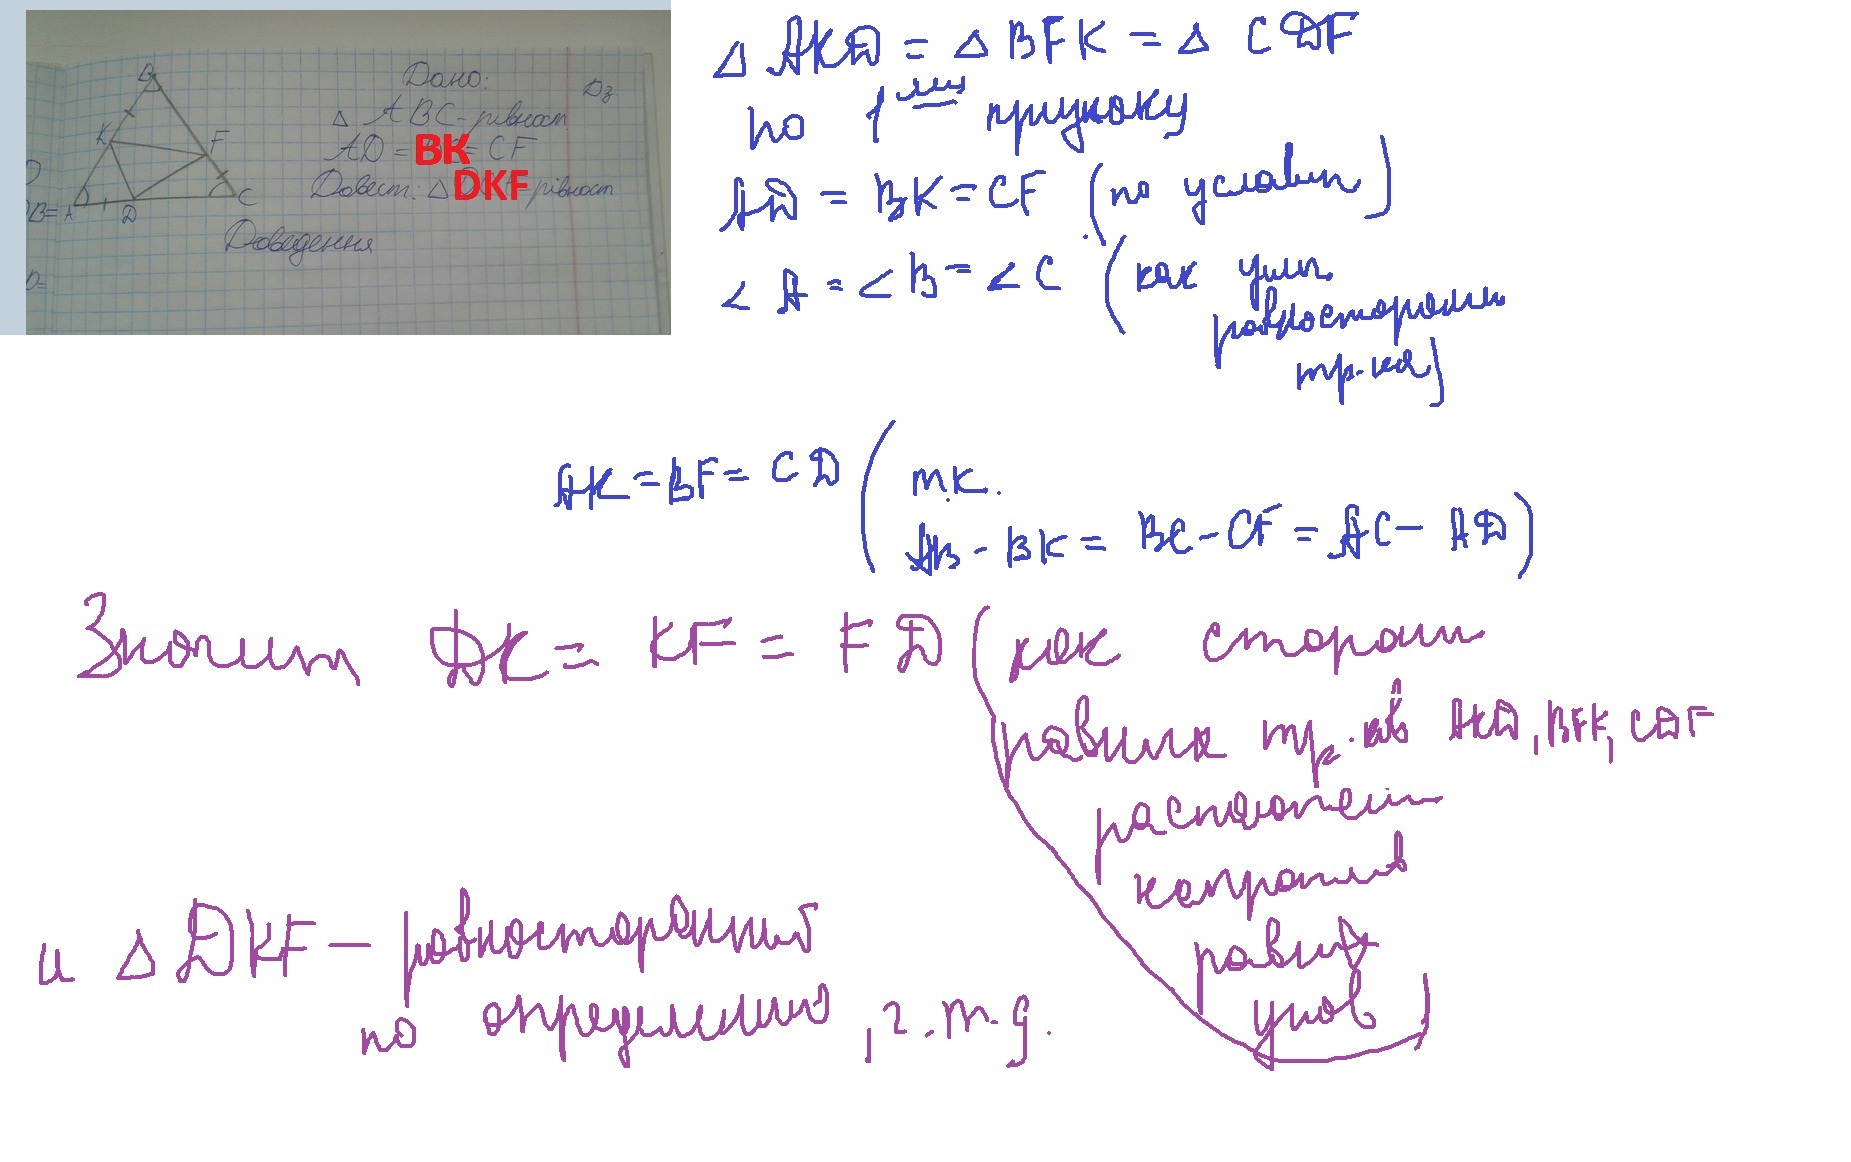 Дано:
Дз.
△ ABC - рівност
AD = BK = CF
Довест: △ DKF - рівност
Доведення
B
K
F
A
D
C
B=
D=
△ AKD = △ BFK = △ CDF
по 1му признаку
AD = BK = CF (по условию)
∠ A = ∠ B = ∠ C (как углы
равносторонн
тр-ка)
AK = BF = CD (т.к.
AB - BK = BC - CF = AC - AD)
Значит DK = KF = FD (как стороны
равных тр-ов AKD, BFK, CDF
расположен
напротив
равных
углов)
и △ DKF - равносторонний
по определению, ч.т.д.